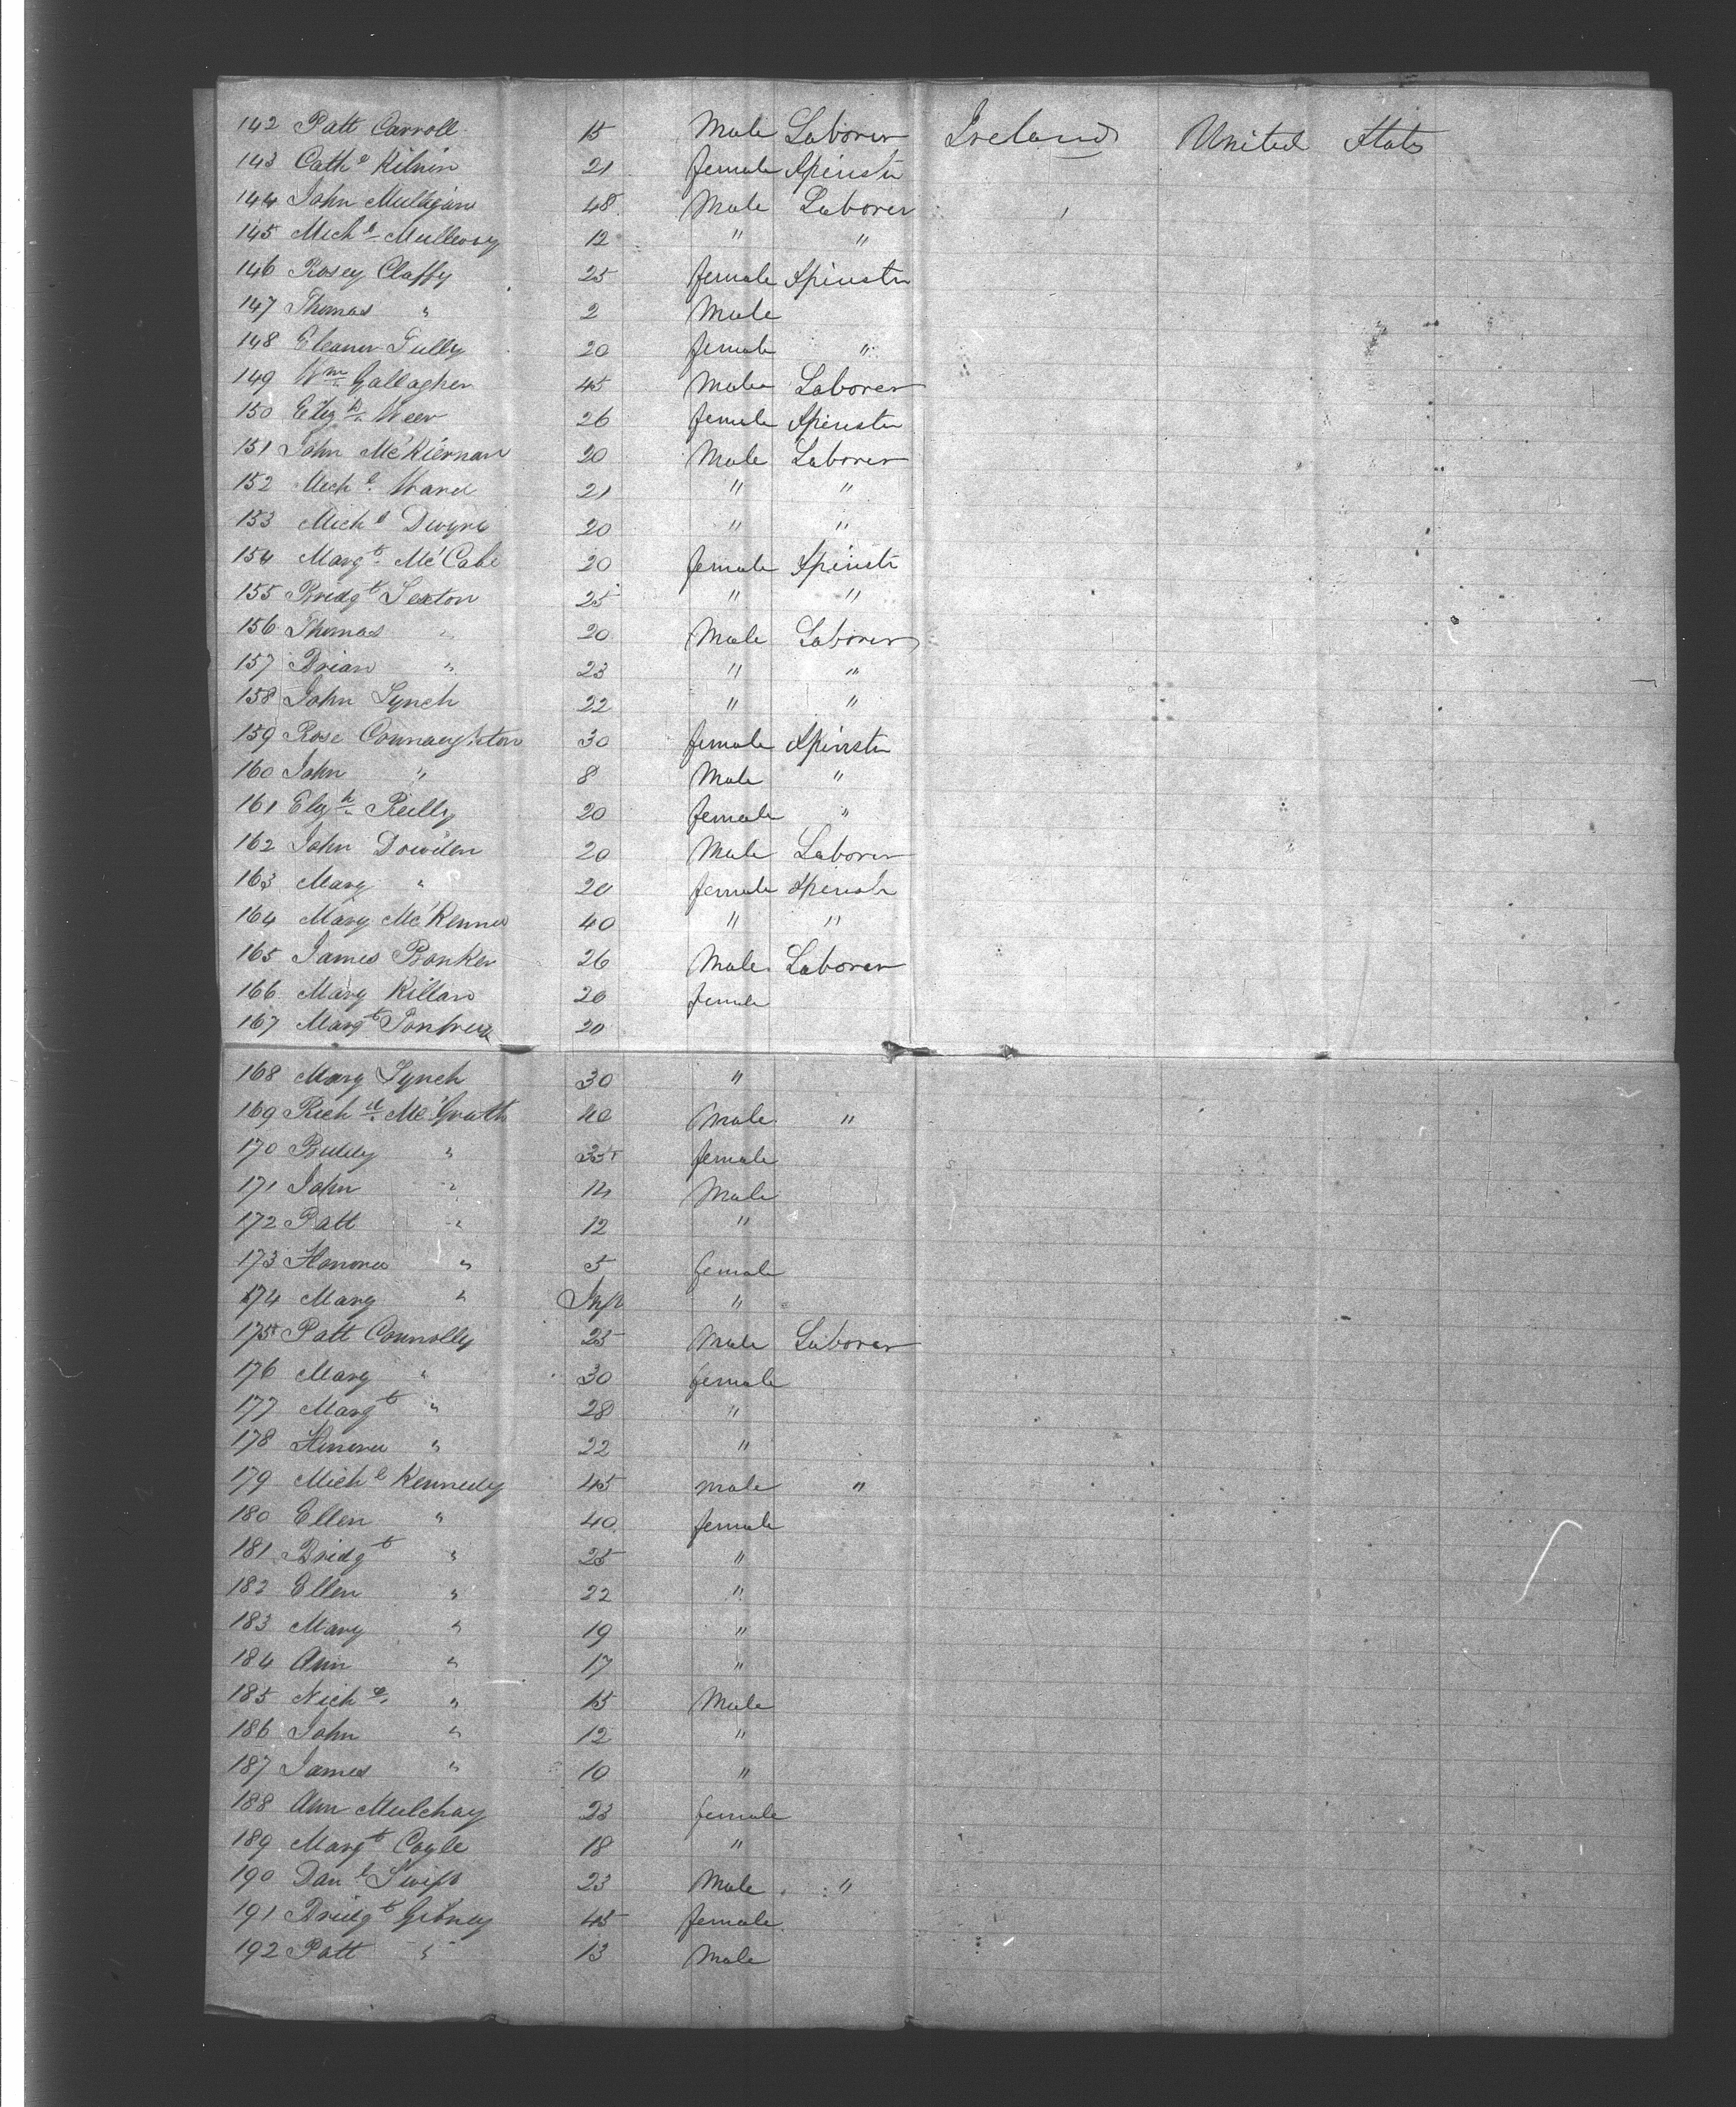 142 Patt Carroll 15 Male Laborer Ireland United States
143 Cath e Kilnin 21 female Spinster
144 John Mulligan 48 Male Laborer
145 Mich l Mulleroy 12 " "
146 Rosey Claffy 25 female Spinster
147 Thomas " 2 Male
148 Eleanor Tully 20 female "
149 Wm Gallagher 45 Male Laborer
150 Eliz h Weer 26 female Spinster
151 John McKiernan 20 Male Laborer
152 Mich l Ward 21 " "
153 Mich l Dwyre 20 " "
154 Marg t McCabe 20 female Spinster
155 Bridg t Sexton 25 " "
156 Thomas " 20 Male Laborer
157 Brian " 23 " "
158 John Lynch 22 " "
159 Rose Connaughton 30 female Spinster
160 John " 8 Male "
161 Elizh Reilly 20 female "
162 John Dowden 20 Male Laborer
163 Mary " 20 female Spinster
164 Mary McKenna 40 " "
165 James Banker 26 Male Laborer
166 Mary Killan 20 female
167 Margt 20
168 Mary Lynch 30 "
169 Rich d McGrath 40 Male "
170 Biddy " 35 female
171 John " 14 Male
172 Patt " 12 "
173 Honora " 5 female
174 Mary " Inft "
175 Patt Connolly 25 Male Laborer
176 Mary " 30 female
177 Margt " 28 "
178 Honora " 22 "
179 Michl Kennedy 45 male "
180 Ellen " 40 female
181 Bridgt " 25 "
182 Ellen " 22 "
183 Mary " 19 "
184 Ann " 17 "
185 Nich s " 15 Male
186 John " 12 "
187 James " 10 "
188 Ann Mulchay 23 female
189 Margt Coyle 18 "
190 Danl Swift 23 Male "
191 Bridgt Gibney 45 female
192 Patt " 13 Male